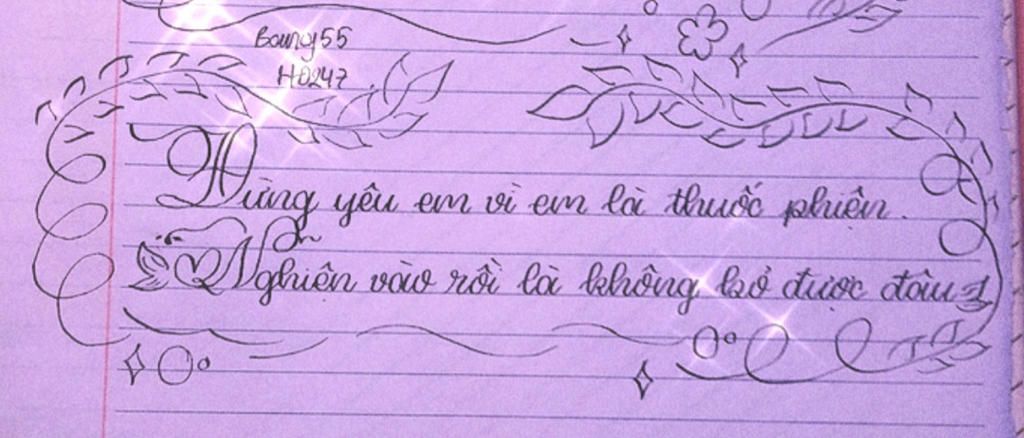 Boury55
H0247
Đừng yêu em vì em là thuốc phiện.
Nghiện vào rồi là không bỏ được đâu